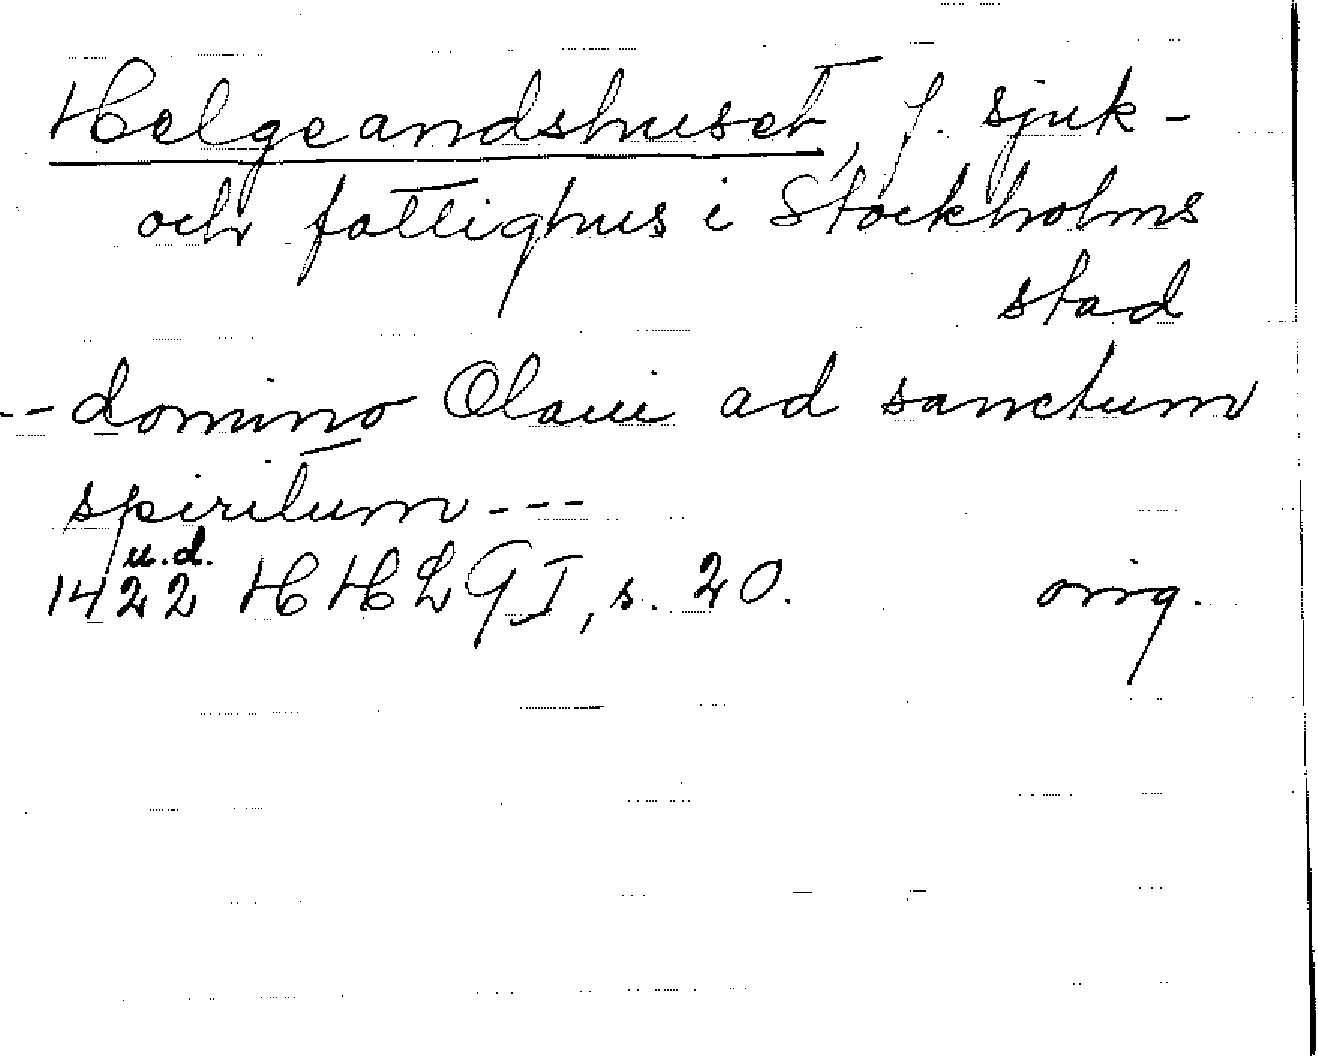 Helgeandshuset, f. sjuk-
och fattighus i Stockholms
stad
-- domino Olaui ad sanctum
spiritum ---
u.d.
1422 HHLG I, s. 20. orig.